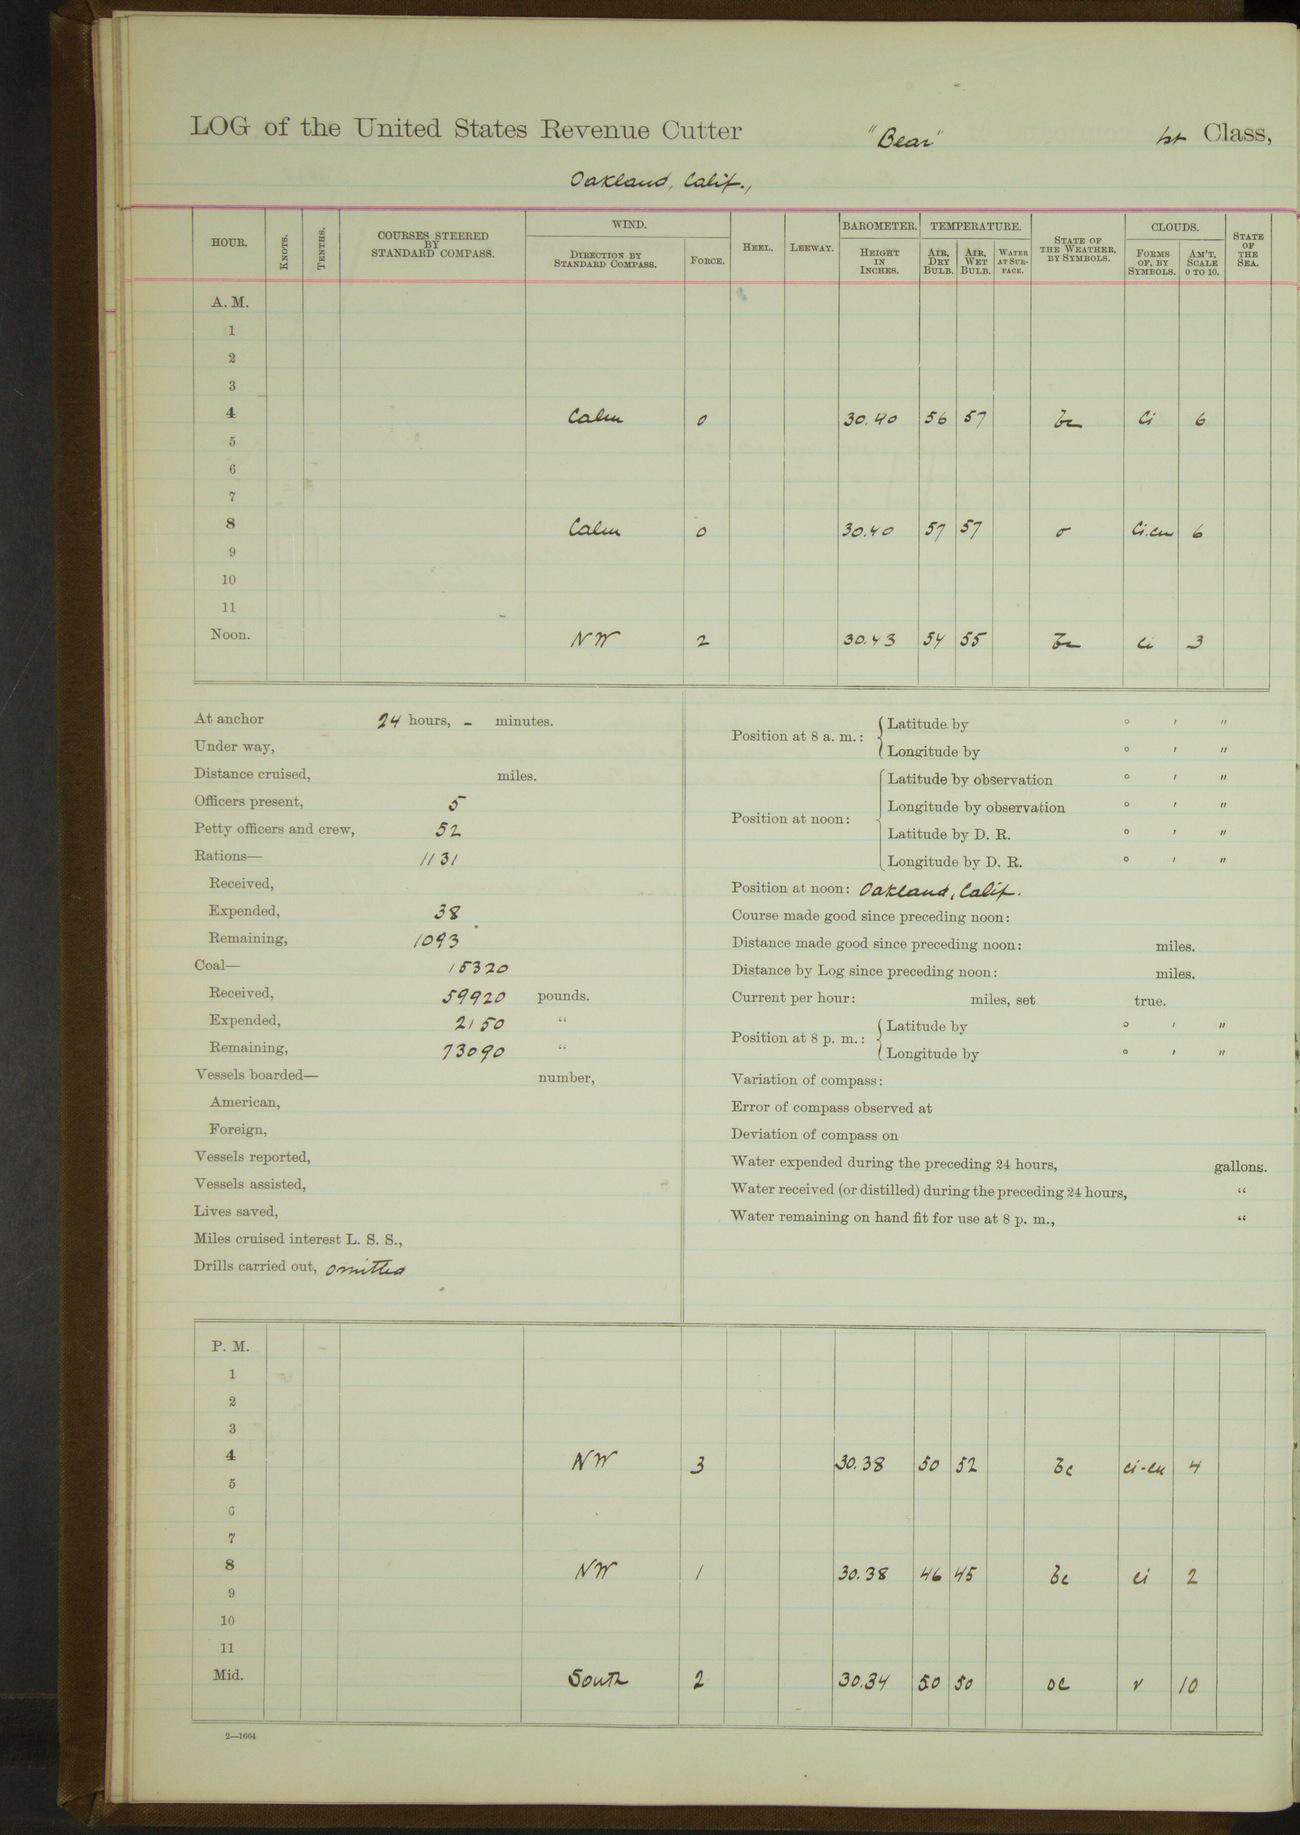 LOG of the United States Revenue Cutter "Bear" 1st Class,
Oakland, Calif.,
HOUR. KNOTS. TENTHS. COURSES STEERED BY STANDARD COMPASS. WIND. DIRECTION BY STANDARD COMPASS. FORCE. HEEL. LEEWAY. BAROMETER. HEIGHT IN INCHES. TEMPERATURE. AIR, DRY BULB. AIR, WET BULB. WATER AT SURFACE. STATE OF THE WEATHER, BY SYMBOLS. CLOUDS. FORMS OF, BY SYMBOLS. AM'T, SCALE 0 TO 10. STATE OF THE SEA.
A. M.
1
2
3
4 Calm 0 30.40 56 57 bc Ci 6
5
6
7
8 Calm 0 30.40 57 57 o Ci.cu 6
9
10
11
Noon. NW 2 30.43 54 55 bc ci 3
At anchor 24 hours, - minutes.
Under way,
Distance cruised, miles.
Officers present, 5
Petty officers and crew, 52
Rations— 1131
Received,
Expended, 38
Remaining, 1093
Coal— 15320
Received, 59920 pounds.
Expended, 2150 "
Remaining, 73090 "
Vessels boarded— number,
American,
Foreign,
Vessels reported,
Vessels assisted,
Lives saved,
Miles cruised interest L. S. S.,
Drills carried out, omitted
Position at 8 a. m.: Latitude by ° ′ ″
Longitude by ° ′ ″
Position at noon: Latitude by observation ° ′ ″
Longitude by observation ° ′ ″
Latitude by D. R. ° ′ ″
Longitude by D. R. ° ′ ″
Position at noon: Oakland, Calif.
Course made good since preceding noon:
Distance made good since preceding noon: miles.
Distance by Log since preceding noon: miles.
Current per hour: miles, set true.
Position at 8 p. m.: Latitude by ° ′ ″
Longitude by ° ′ ″
Variation of compass:
Error of compass observed at
Deviation of compass on
Water expended during the preceding 24 hours, gallons.
Water received (or distilled) during the preceding 24 hours, "
Water remaining on hand fit for use at 8 p. m., "
P. M.
1
2
3
4 NW 3 30.38 50 52 bc ci-cu 4
5
6
7
8 NW 1 30.38 46 45 bc ci 2
9
10
11
Mid. South 2 30.34 50 50 oc 10
2—1664